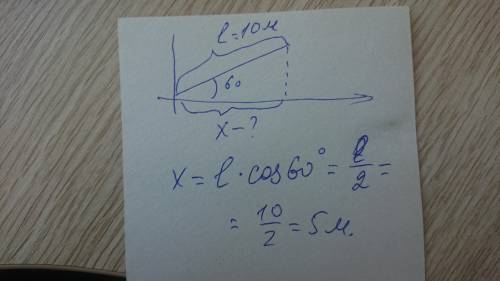 l=10м
60
x-?
x = l · cos60° = l/2 =
= 10/2 = 5м.